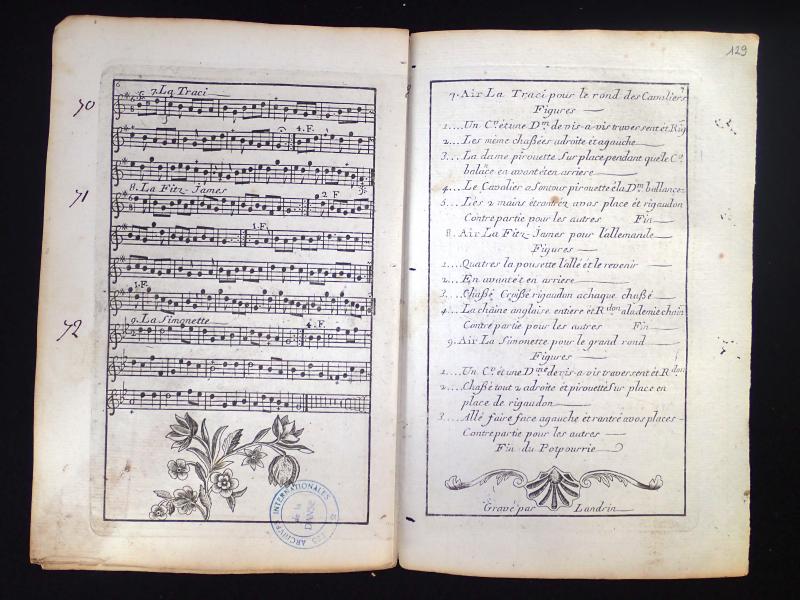 6
7. La Traci
70
4. F.
71
8. La Fitz-James
2 F
1. F.
1. F.
72
9. La Simonette
4. F.
ARCHIVES INTERNATIONALES
de la
DANSE
129
7. Air La Traci pour le rond des Cavaliers
Figures
1.... Un Cer. et une Dme. de vis-a-vis traversent et Rig
2.... Les même chaßées adroite et agauche
3.... La dame pirouette Sur place pendant que le Cer.
balace en avant et en arriere
4.... Le Cavalier a Sontour pirouette et la Dme. ballance
5.... Les 2 mains et rantréz avos place et rigaudon
Contre partie pour les autres Fin
8. Air La Fitz-James pour l'allemande
Figures
1.... Quatres la pousette l'allé et le revenir
2.... En avant et en arriere
3.... Chaßé Croißé rigaudon achaque chaßé
4.... La chaine anglaise entiere et Rdon. ala demie chain
Contre partie pour les autres Fin
9. Air La Simonette pour le grand rond
Figures
1.... Un Cer. et une Dme. de vis-a-vis traversent et Rdon.
2.... Chaßé tout 2 adroite et pirouette Sur place en
place de rigaudon
3.... Allé faire face agauche et rantré avos places
Contre partie pour les autres
Fin du Potpourrie
Gravé par Landrin